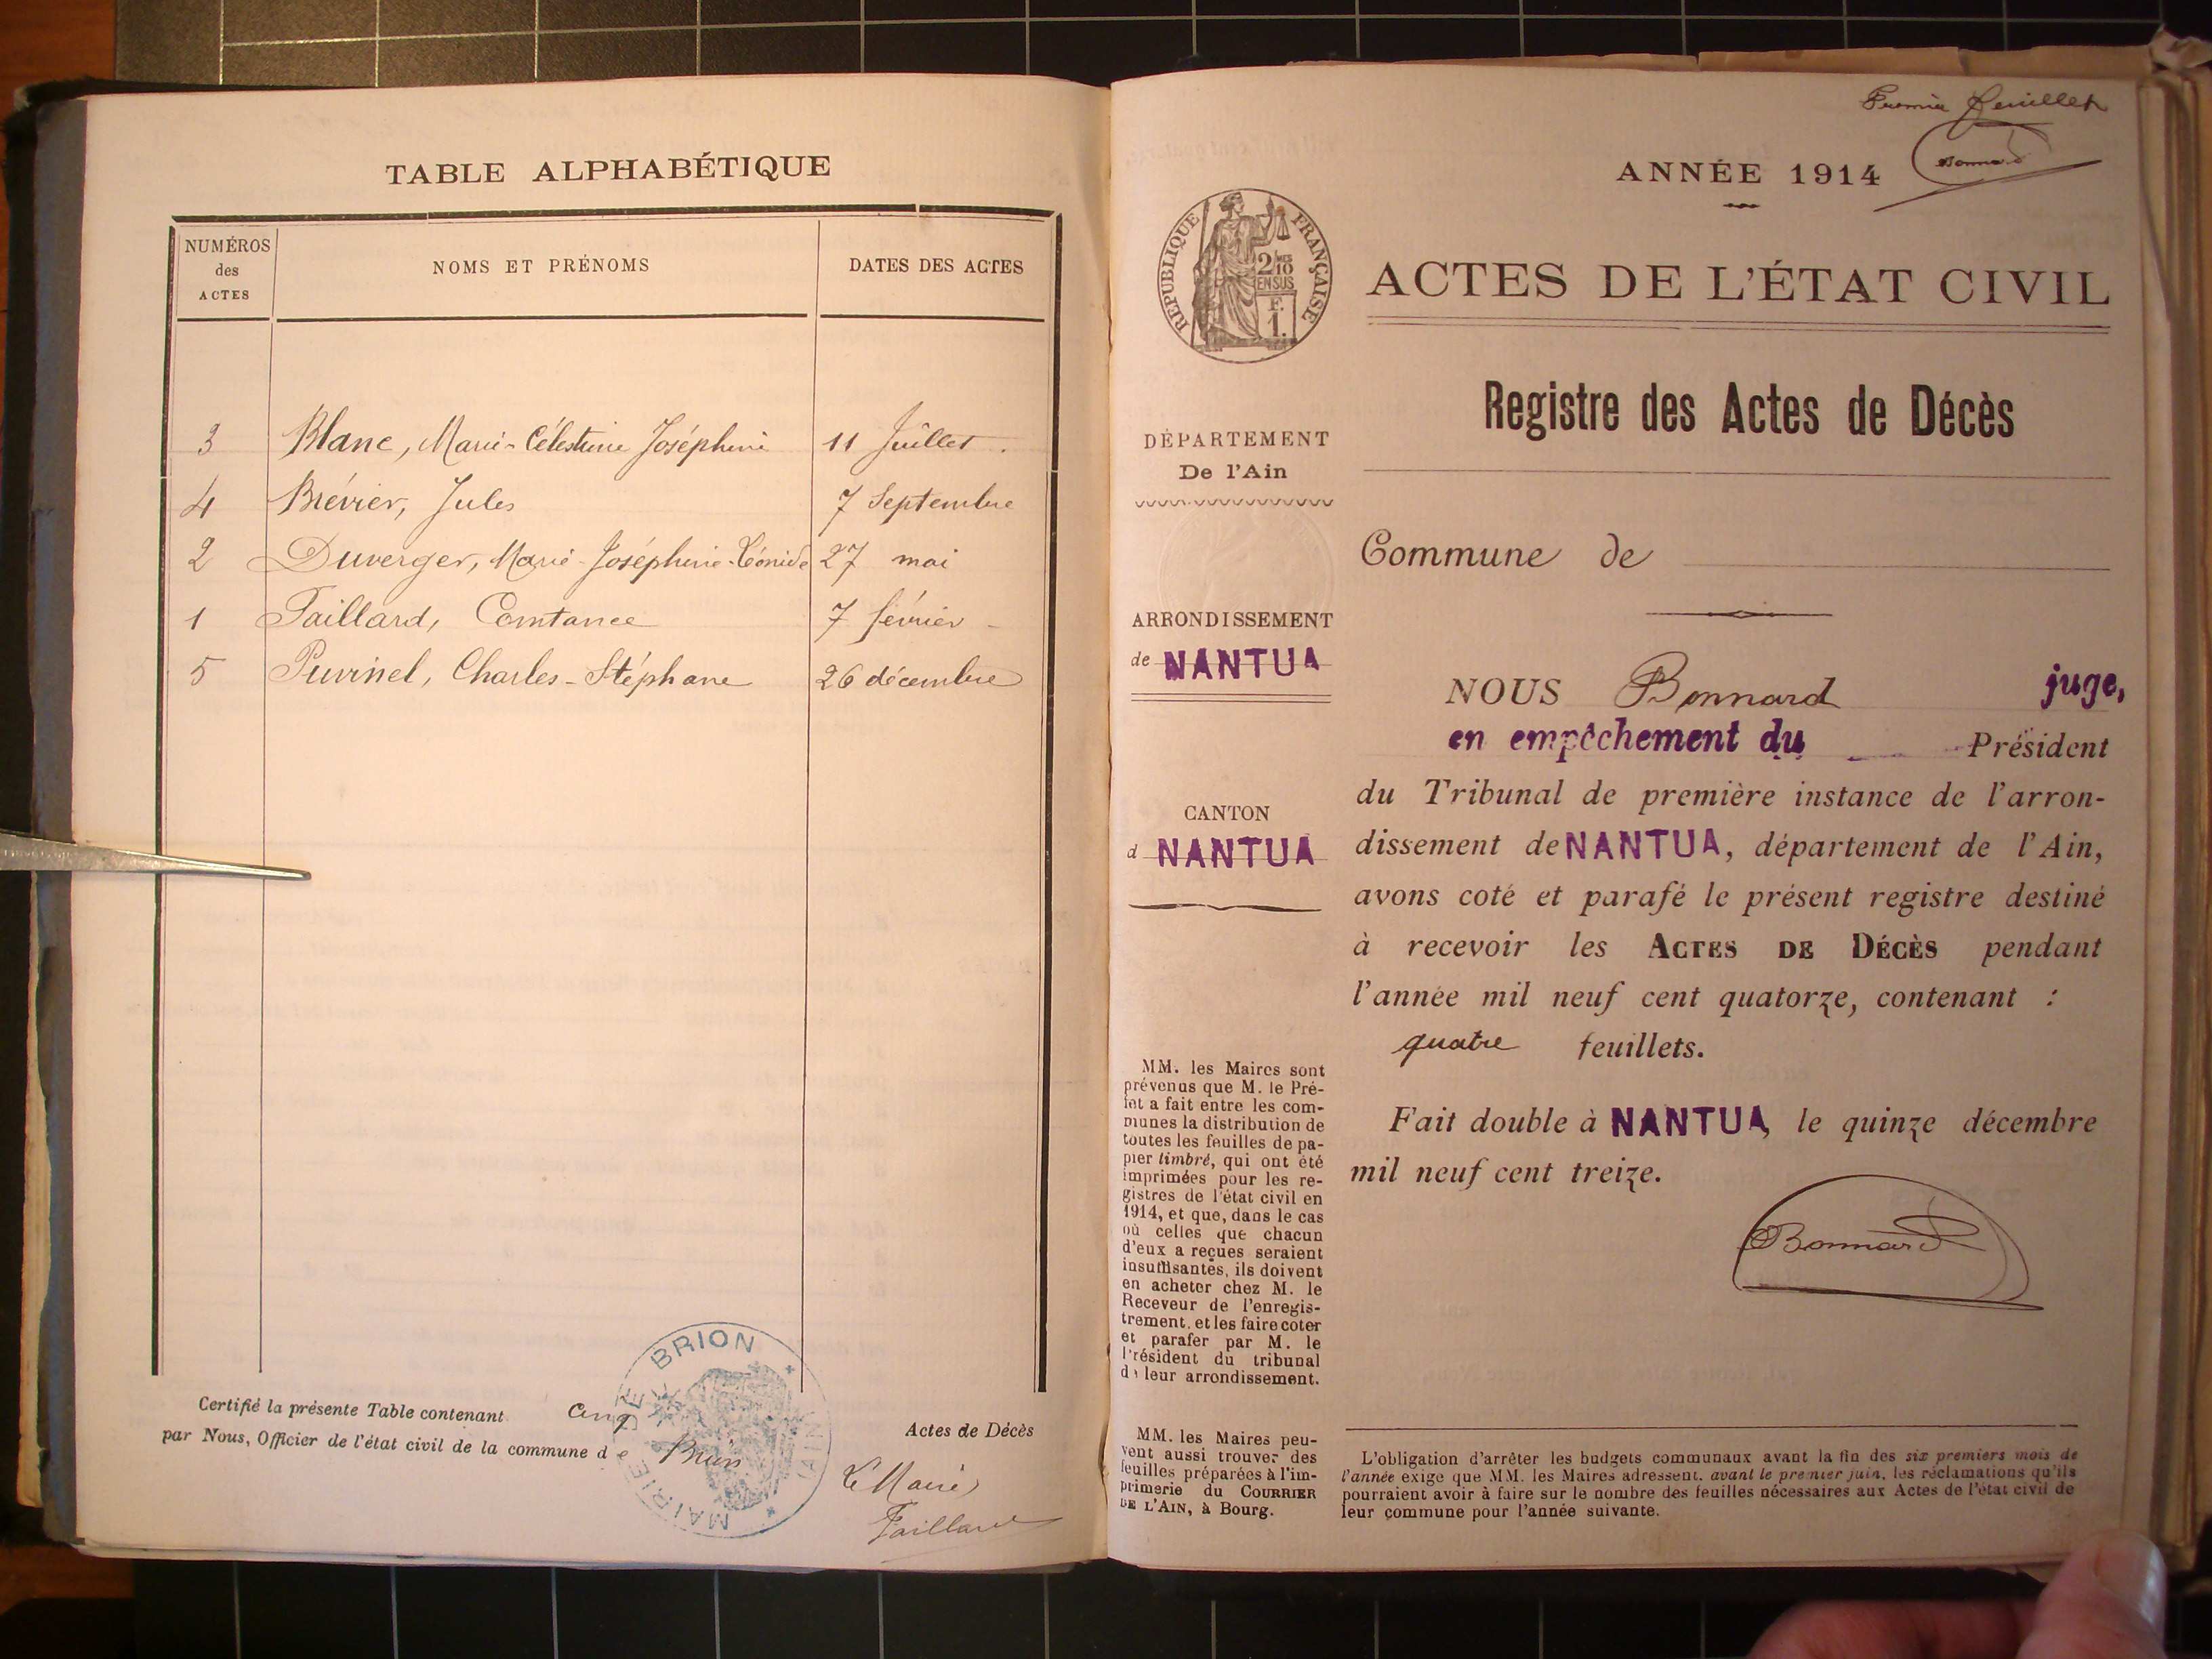 TABLE ALPHABÉTIQUE
NUMÉROS des ACTES
NOMS ET PRÉNOMS
DATES DES ACTES
3 Blanc, Marie-Célestine Joséphine 11 Juillet.
4 Brévier, Jules 7 Septembre
2 Duverger, Marie-Joséphine- 27 mai
1 Taillard, Constance 7 février
5 Charles-Stéphane 26 décembre
Certifié la présente Table contenant cinq Actes de Décès
par Nous, Officier de l'état civil de la commune de Brion
MAIRIE DE BRION
* AIN *
Le Maire
Taillard
Premier feuillet
Bonnard
ANNÉE 1914
RÉPUBLIQUE FRANÇAISE
2/10
EN SUS
F.
1.
ACTES DE L'ÉTAT CIVIL
Registre des Actes de Décès
DÉPARTEMENT
De l'Ain
Commune de
ARRONDISSEMENT
de NANTUA
CANTON
d NANTUA
NOUS Bonnard juge,
en empêchement du Président
du Tribunal de première instance de l'arron-
dissement de NANTUA, département de l'Ain,
avons coté et parafé le présent registre destiné
à recevoir les ACTES DE DÉCÈS pendant
l'année mil neuf cent quatorze, contenant :
quatre feuillets.
Fait double à NANTUA, le quinze décembre
mil neuf cent treize.
Bonnard
MM. les Maires sont
prévenus que M. le Pré-
fet a fait entre les com-
munes la distribution de
toutes les feuilles de pa-
pier timbré, qui ont été
imprimées pour les re-
gistres de l'état civil en
1914, et que, dans le cas
où celles que chacun
d'eux a reçues seraient
insuffisantes, ils doivent
en acheter chez M. le
Receveur de l'enregis-
trement, et les faire coter
et parafer par M. le
Président du tribunal
de leur arrondissement.
MM. les Maires peu-
vent aussi trouver des
feuilles préparées à l'im-
primerie du COURRIER
DE L'AIN, à Bourg.
L'obligation d'arrêter les budgets communaux avant la fin des six premiers mois de
l'année exige que MM. les Maires adressent, avant le premier juin, les réclamations qu'ils
pourraient avoir à faire sur le nombre des feuilles nécessaires aux Actes de l'état civil de
leur commune pour l'année suivante.